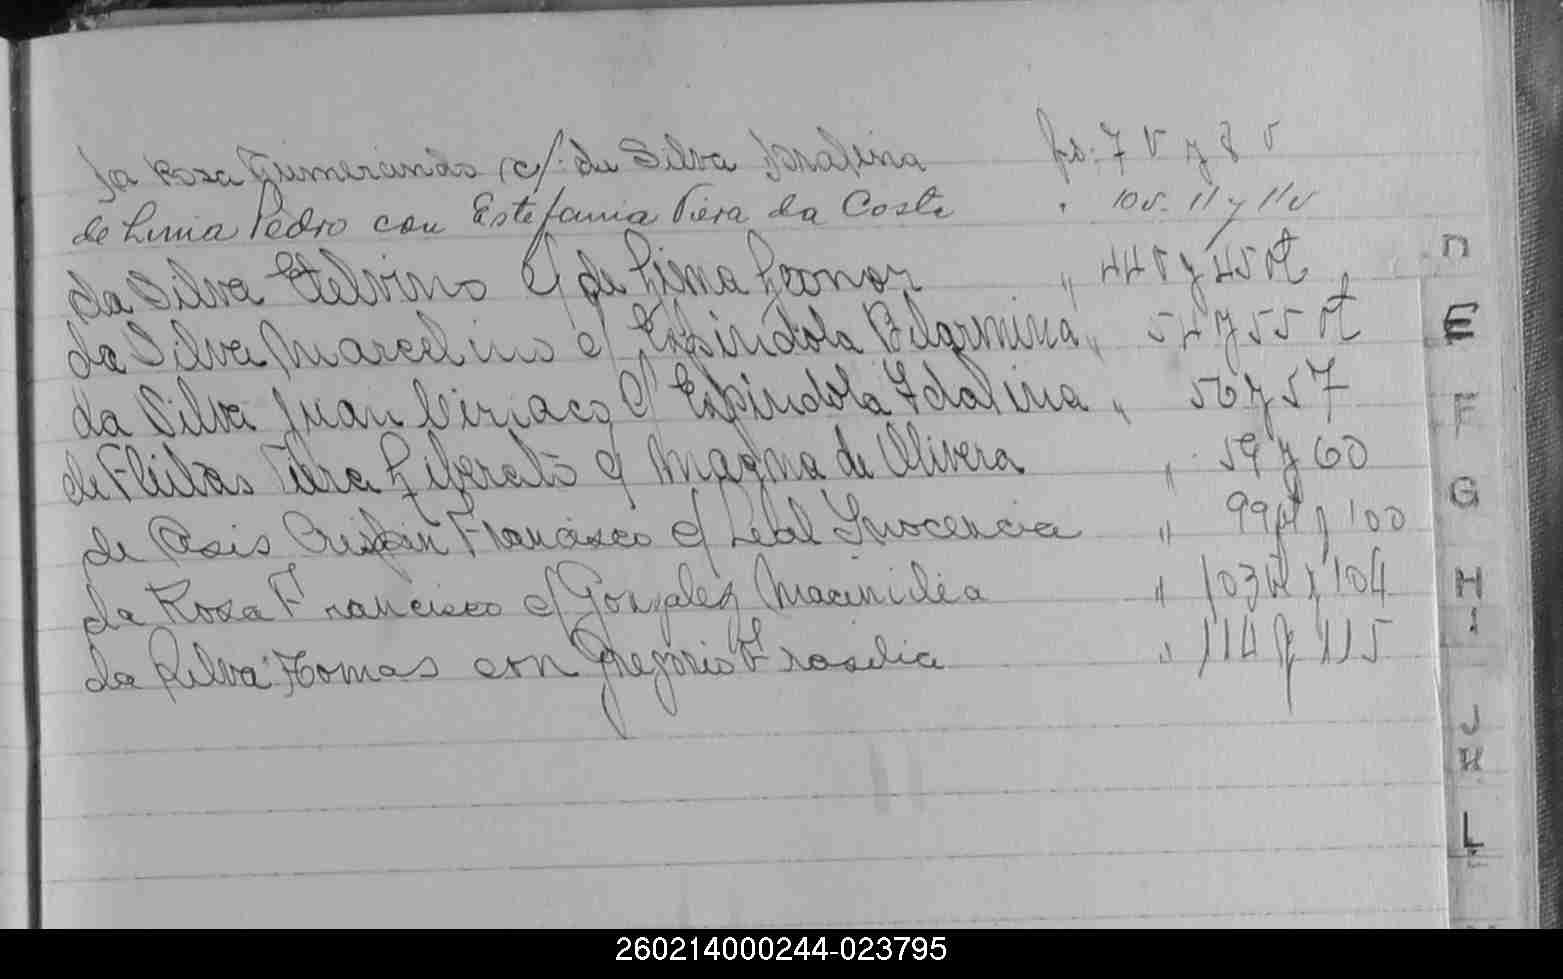 da Rosa Gumersindo c/. da Silva fs: 7 v y 8 v
de Lima Pedro con Estefania Viera da Costa " 10v. 11 y 11v
da Silva Etelvino c/ de Lima Leonor " 44v y 45 vt
da Silva Marcelino c/ Espindola Belarmina " 54 y 55 vt
da Silva Juan Ciriaco c/ Espindola Idalina " 56 y 57
de Fleitas Viera Liberato c/ Magna de Olivera " 59 y 60
de Asis Crispin Francisco c/ Leal Inocencia " 99vt y 100
da Rosa Francisco c/ Gonzalez " 103vt y 104
da Silva Tomas con Gregorio " 114 y 115
D
E
F
G
H
I
J
K
L
260214000244-023795